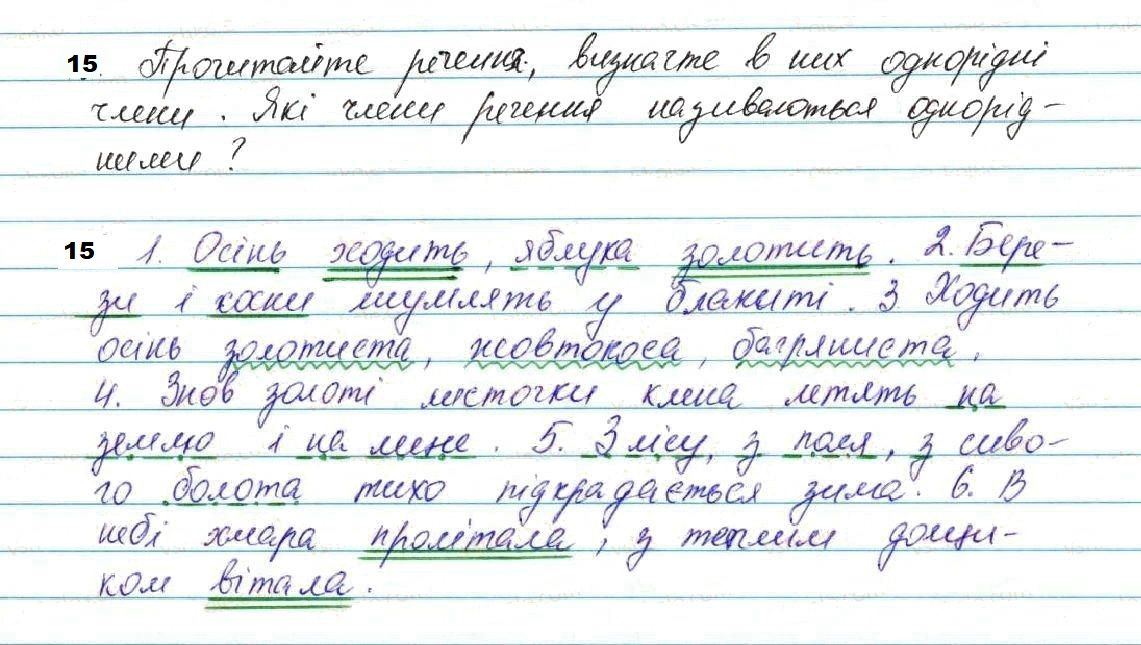 15. Прочитайте речення, визначте в них однорідні
члени. Які члени речення називаються однорід-
ними?
15 1. Осінь ходить, яблука золотить. 2. Бере-
зи і сосни шумлять у блакиті. 3 Ходить
осінь золотиста, жовтокоса, багряниста.
4. Знов золоті листочки клена летять на
землю і на мене. 5. З лісу, з поля, з сиво-
го болота тихо підкрадається зима. 6. В
небі хмара пролітала, з теплим дощи-
ком вітала.